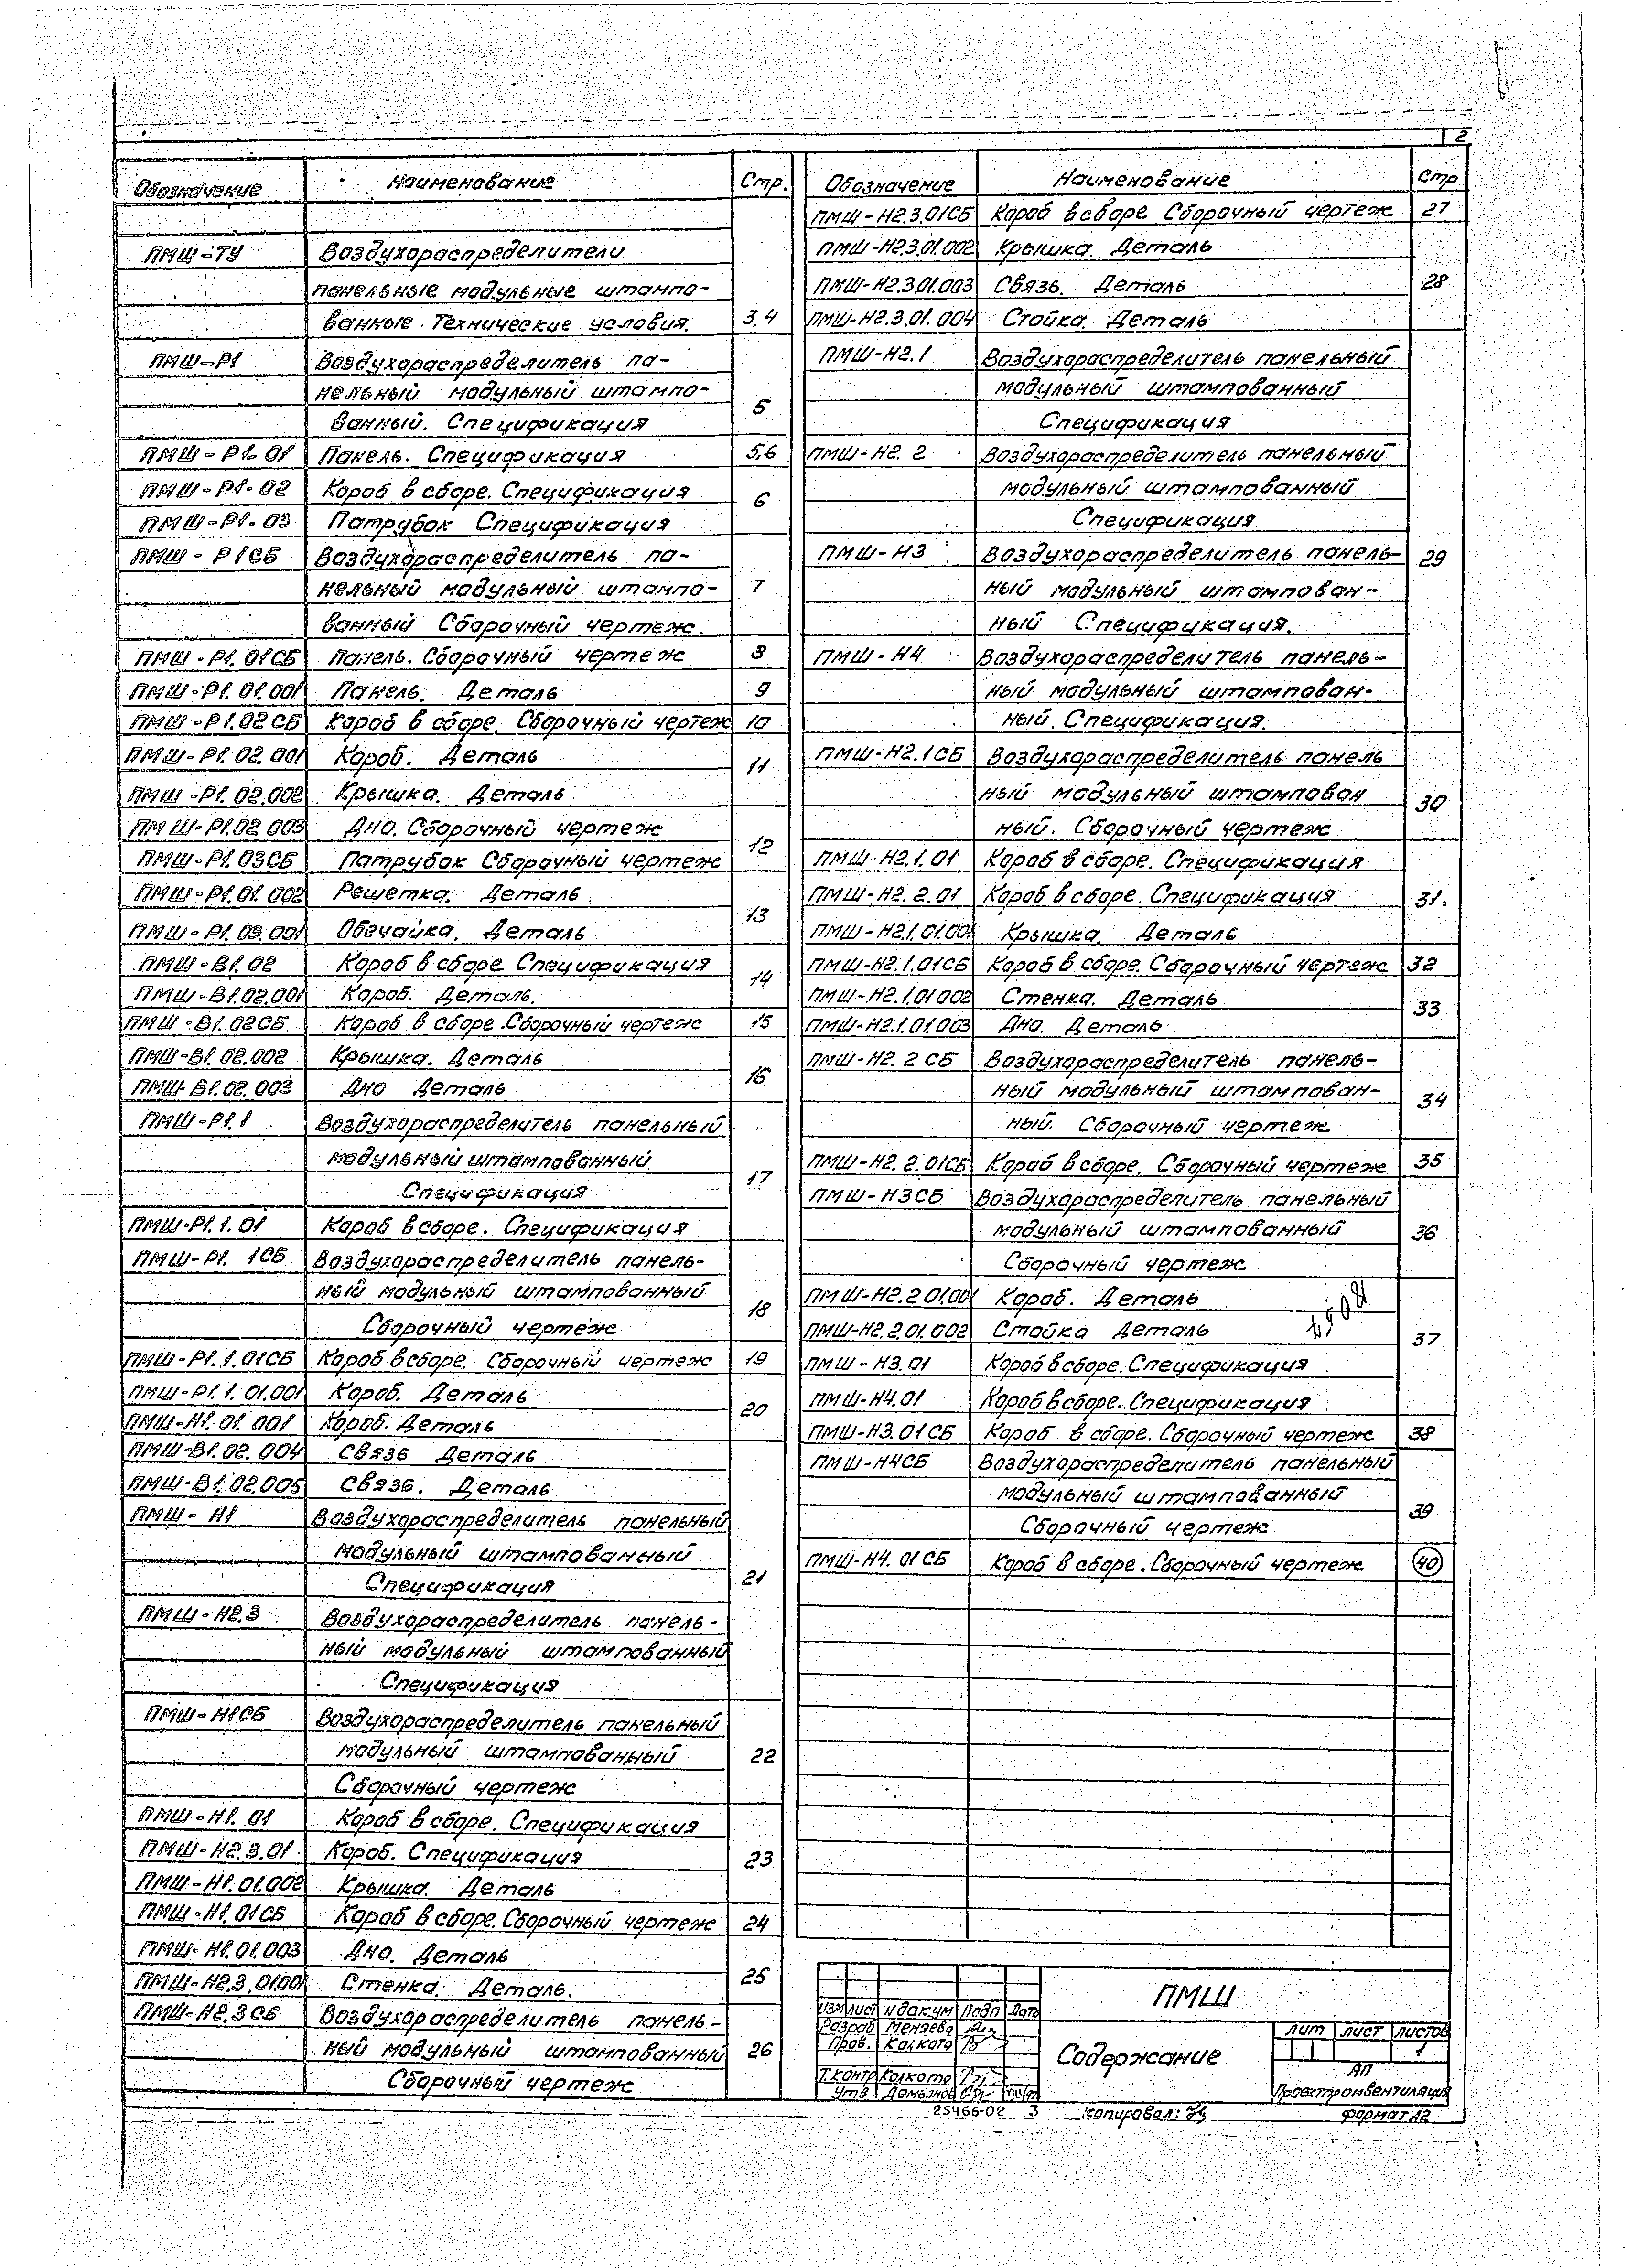 2
Обозначение Наименование Стр.
ПМШ-ТУ Воздухораспределители
панельные модульные штампо-
ванные. Технические условия. 3,4
ПМШ-Р1 Воздухораспределитель па-
нельный модульный штампо-
ванный. Спецификация 5
ПМШ-Р1.01 Панель. Спецификация 5,6
ПМШ-Р1.02 Короб в сборе. Спецификация 6
ПМШ-Р1.03 Патрубок Спецификация
ПМШ-Р1СБ Воздухораспределитель па-
нельный модульный штампо- 7
ванный Сборочный чертеж.
ПМШ-Р1.01СБ Панель. Сборочный чертеж 8
ПМШ-Р1.01.001 Панель. Деталь 9
ПМШ-Р1.02СБ Короб в сборе. Сборочный чертеж 10
ПМШ-Р1.02.001 Короб. Деталь 11
ПМШ-Р1.02.002 Крышка. Деталь
ПМШ-Р1.02.003 Дно. Сборочный чертеж 12
ПМШ-Р1.03СБ Патрубок Сборочный чертеж
ПМШ-Р1.01.002 Решетка. Деталь 13
ПМШ-Р1.03.001 Обечайка. Деталь
ПМШ-В1.02 Короб в сборе Спецификация 14
ПМШ-В1.02.001 Короб. Деталь.
ПМШ-В1.02СБ Короб в сборе.Сборочный чертеж 15
ПМШ-В1.02.002 Крышка. Деталь 16
ПМШ-В1.02.003 Дно Деталь
ПМШ-Р1.1 Воздухораспределитель панельный
модульный штампованный 17
Спецификация
ПМШ-Р1.1.01 Короб в сборе. Спецификация
ПМШ-Р1.1СБ Воздухораспределитель панель-
ный модульный штампованный 18
Сборочный чертеж
ПМШ-Р1.1.01СБ Короб в сборе. Сборочный чертеж 19
ПМШ-Р1.1.01.001 Короб. Деталь 20
ПМШ-Н1.01.001 Короб. Деталь
ПМШ-В1.02.004 Связь Деталь
ПМШ-В1.02.005 Связь. Деталь
ПМШ-Н1 Воздухораспределитель панельный
модульный штампованный 21
Спецификация
ПМШ-Н2.3 Воздухораспределитель панель-
ный модульный штампованный
Спецификация
ПМШ-Н1СБ Воздухораспределитель панельный
модульный штампованный 22
Сборочный чертеж
ПМШ-Н1.01 Короб в сборе. Спецификация
ПМШ-Н2.3.01 Короб. Спецификация 23
ПМШ-Н1.01.002 Крышка. Деталь
ПМШ-Н1.01СБ Короб в сборе.Сборочный чертеж 24
ПМШ-Н1.01.003 Дно. Деталь 25
ПМШ-Н2.3.01.001 Стенка. Деталь.
ПМШ-Н2.3СБ Воздухораспределитель панель-
ный модульный штампованный 26
Сборочный чертеж
Обозначение Наименование Стр
ПМШ-Н2.3.01СБ Короб в сборе Сборочный чертеж 27
ПМШ-Н2.3.01.002 Крышка. Деталь
ПМШ-Н2.3.01.003 Связь. Деталь 28
ПМШ-Н2.3.01.004 Стойка. Деталь
ПМШ-Н2.1 Воздухораспределитель панельный
модульный штампованный
Спецификация
ПМШ-Н2.2 Воздухораспределитель панельный
модульный штампованный
Спецификация
ПМШ-Н3 Воздухораспределитель панель- 29
ный модульный штампован-
ный Спецификация.
ПМШ-Н4 Воздухораспределитель панель-
ный модульный штампован-
ный. Спецификация.
ПМШ-Н2.1СБ Воздухораспределитель панель
ный модульный штампован 30
ный. Сборочный чертеж
ПМШ-Н2.1.01 Короб в сборе. Спецификация
ПМШ-Н2.2.01 Короб в сборе. Спецификация 31
ПМШ-Н2.1.01.001 Крышка. Деталь
ПМШ-Н2.1.01СБ Короб в сборе. Сборочный чертеж 32
ПМШ-Н2.1.01.002 Стенка. Деталь 33
ПМШ-Н2.1.01.003 Дно. Деталь
ПМШ-Н2.2СБ Воздухораспределитель панель-
ный модульный штампован- 34
ный. Сборочный чертеж
ПМШ-Н2.2.01СБ Короб в сборе. Сборочный чертеж 35
ПМШ-Н3СБ Воздухораспределитель панельный
модульный штампованный 36
Сборочный чертеж
ПМШ-Н2.2.01.001 Короб. Деталь
ПМШ-Н2.2.01.002 Стойка Деталь 37
ПМШ-Н3.01 Короб в сборе. Спецификация
ПМШ-Н4.01 Короб в сборе. Спецификация
ПМШ-Н3.01СБ Короб в сборе. Сборочный чертеж 38
ПМШ-Н4СБ Воздухораспределитель панельный
модульный штампованный 39
Сборочный чертеж
ПМШ-Н4.01СБ Короб в сборе. Сборочный чертеж 40
ПМШ
Изм лист N докум Подп Дата
Разраб
Пров. Колкота
Т.контр Колкота
Утв
Содержание
лит лист листов
1
АП
Проектпромвентиляция
25466-02 3 копировал: формат А2